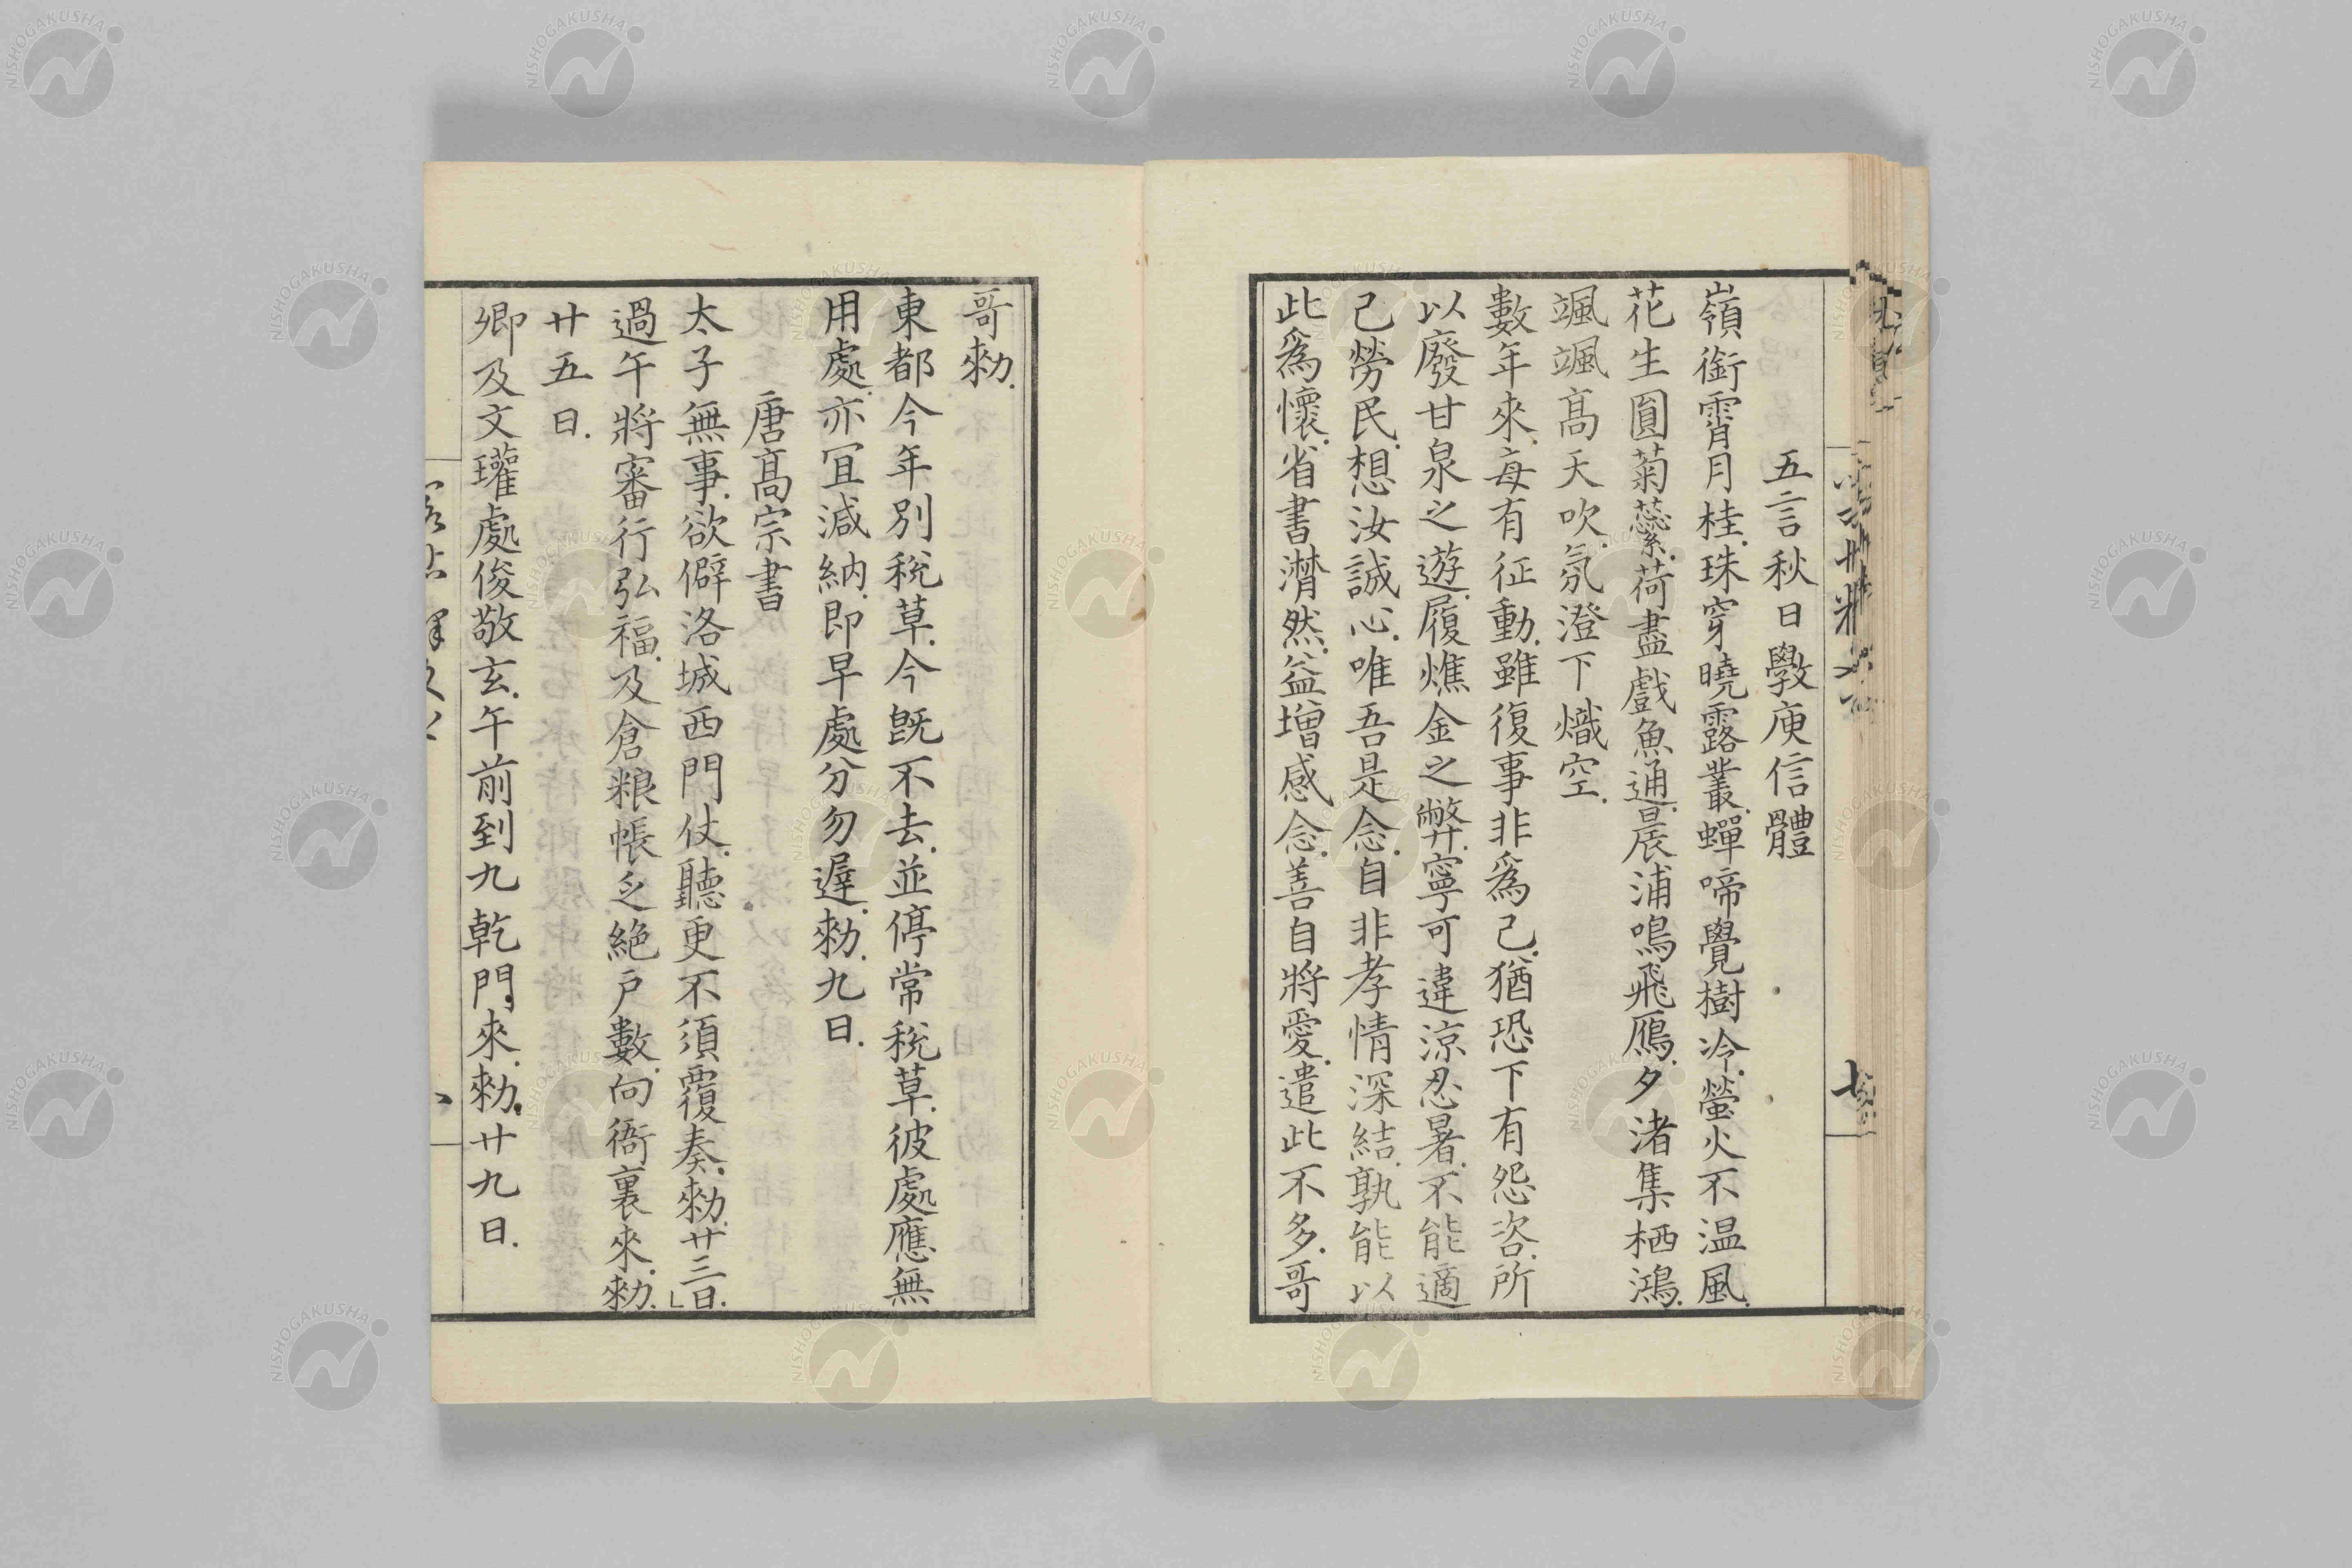 五言秋日斆庾信體
嶺銜霄月桂.珠穿曉露叢.蟬啼覺樹冷.螢火不温風.
花生圓菊蕊.荷盡戲魚通.晨浦鳴飛鴈.夕渚集栖鴻.
颯颯高天吹.氛澄下熾空.
數年來.每有征動.雖復事非為己.猶恐下有怨咨.所
以廢甘泉之遊.履燋金之弊.寧可違涼忍暑.不能適
己勞民.想汝誠心.唯吾是念.自非孝情深結.孰能以
此為懷.省書潸然.益增感念.善自將愛.遣此不多.哥
哥勑.
東都今年別税草.今既不去.並停常税草.彼處應無
用處.亦宜減納.即早處分勿遲.勑.九日.
唐高宗書
太子無事.欲僻洛城西門仗.聽更不須覆奏.勑.廿三日.
過午將審行弘福.及倉粮帳乏絶户數.向衙裏來.勑.
廿五日.
卿及文瓘處俊敬玄.午前到九乾門來.勑.廿九日.
NISHOGAKUSHA